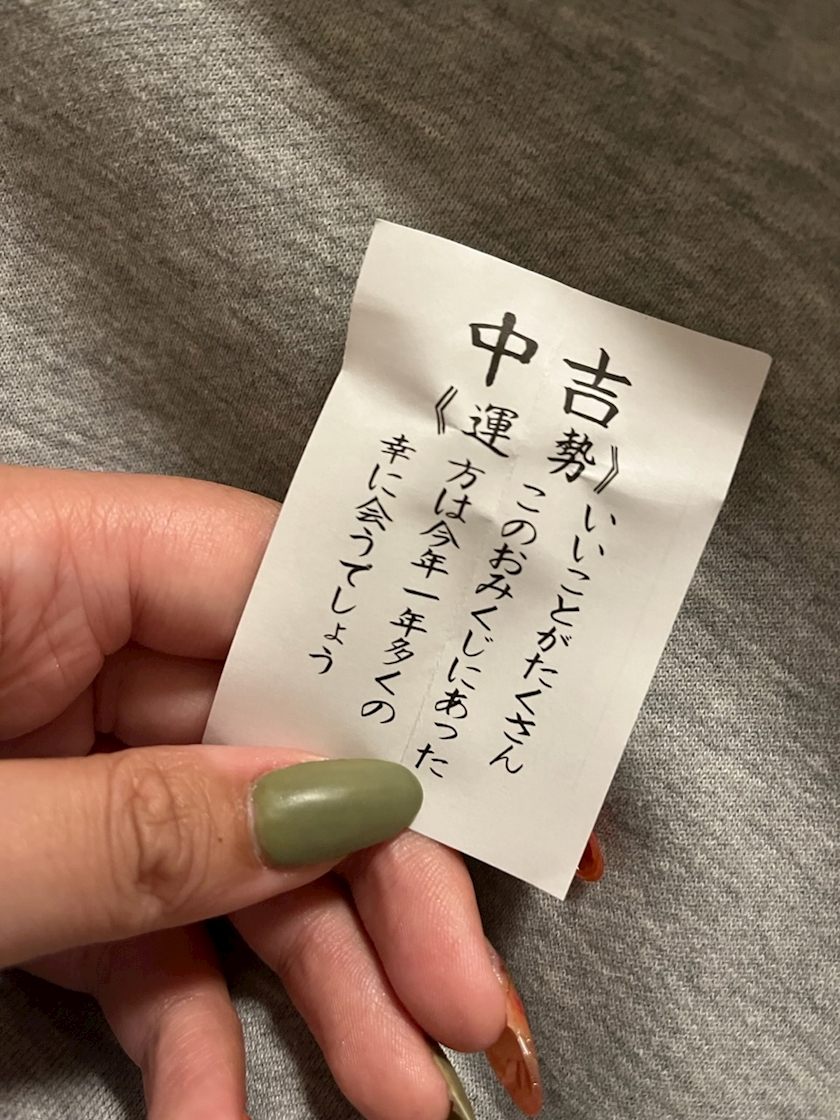 中吉
《運勢》
いいことがたくさん
このおみくじにあった
方は今年一年多くの
幸に会うでしょう